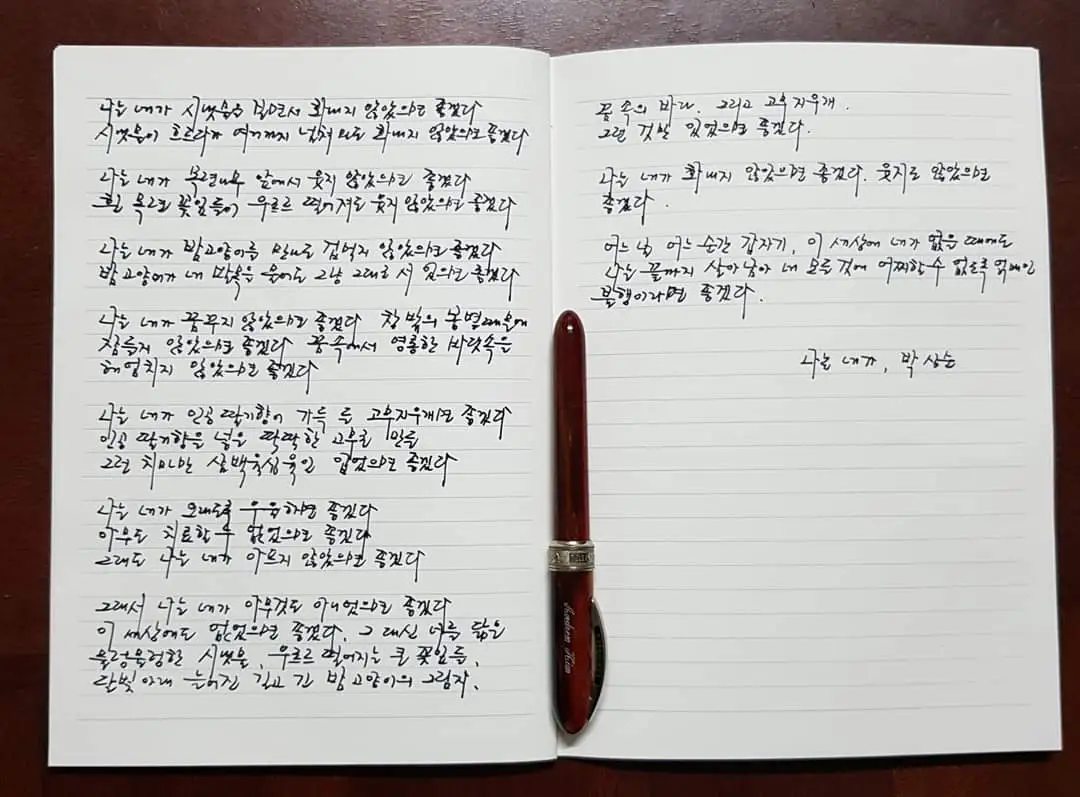 나는 내가 시냇물을 길면서 화내지 않았으면 좋겠다
시냇물이 흐르다가 여기까지 넘쳐 와도 화내지 않았으면 좋겠다
나는 내가 목련나무 앞에서 웃지 않았으면 좋겠다
흰 목련 꽃잎들이 우르르 떨어져도 웃지 않았으면 좋겠다
나는 내가 밤고양이를 만나도 겁먹지 않았으면 좋겠다
밤고양이가 내 발목을 물어도 그냥 그대로 서 있으면 좋겠다
나는 내가 꿈꾸지 않았으면 좋겠다 창밖의 봄볕 때문에
잠들지 않았으면 좋겠다 꿈속에서 영롱한 바닷속을
헤엄치지 않았으면 좋겠다
나는 내가 인공 딸기향이 가득 든 고무지우개면 좋겠다
인공 딸기향을 넣은 딱딱한 고무로 만든
그런 치마만 삼백육십육일 입었으면 좋겠다
나는 내가 오래도록 우울하면 좋겠다
아무도 치료할 수 없었으면 좋겠다
그래도 나는 내가 아프지 않았으면 좋겠다
그래서 나는 내가 아무것도 아니었으면 좋겠다
이 세상에도 없었으면 좋겠다. 그 대신 너를 닮은
물렁물렁한 시냇물, 우르르 떨어지는 큰 꽃잎들,
달빛 아래 늘어진 길고 긴 밤고양이의 그림자,
꿈 속의 바다. 그리고 고무지우개.
그런 것만 있었으면 좋겠다.
나는 내가 화내지 않았으면 좋겠다. 웃지도 않았으면
좋겠다.
어느 날 어느 순간 갑자기, 이 세상에 내가 없을 때에도
나는 끝까지 살아남아 내 모든 것에 어찌할 수 없도록 얽매인
불행이라면 좋겠다.
나는 내가, 박상순